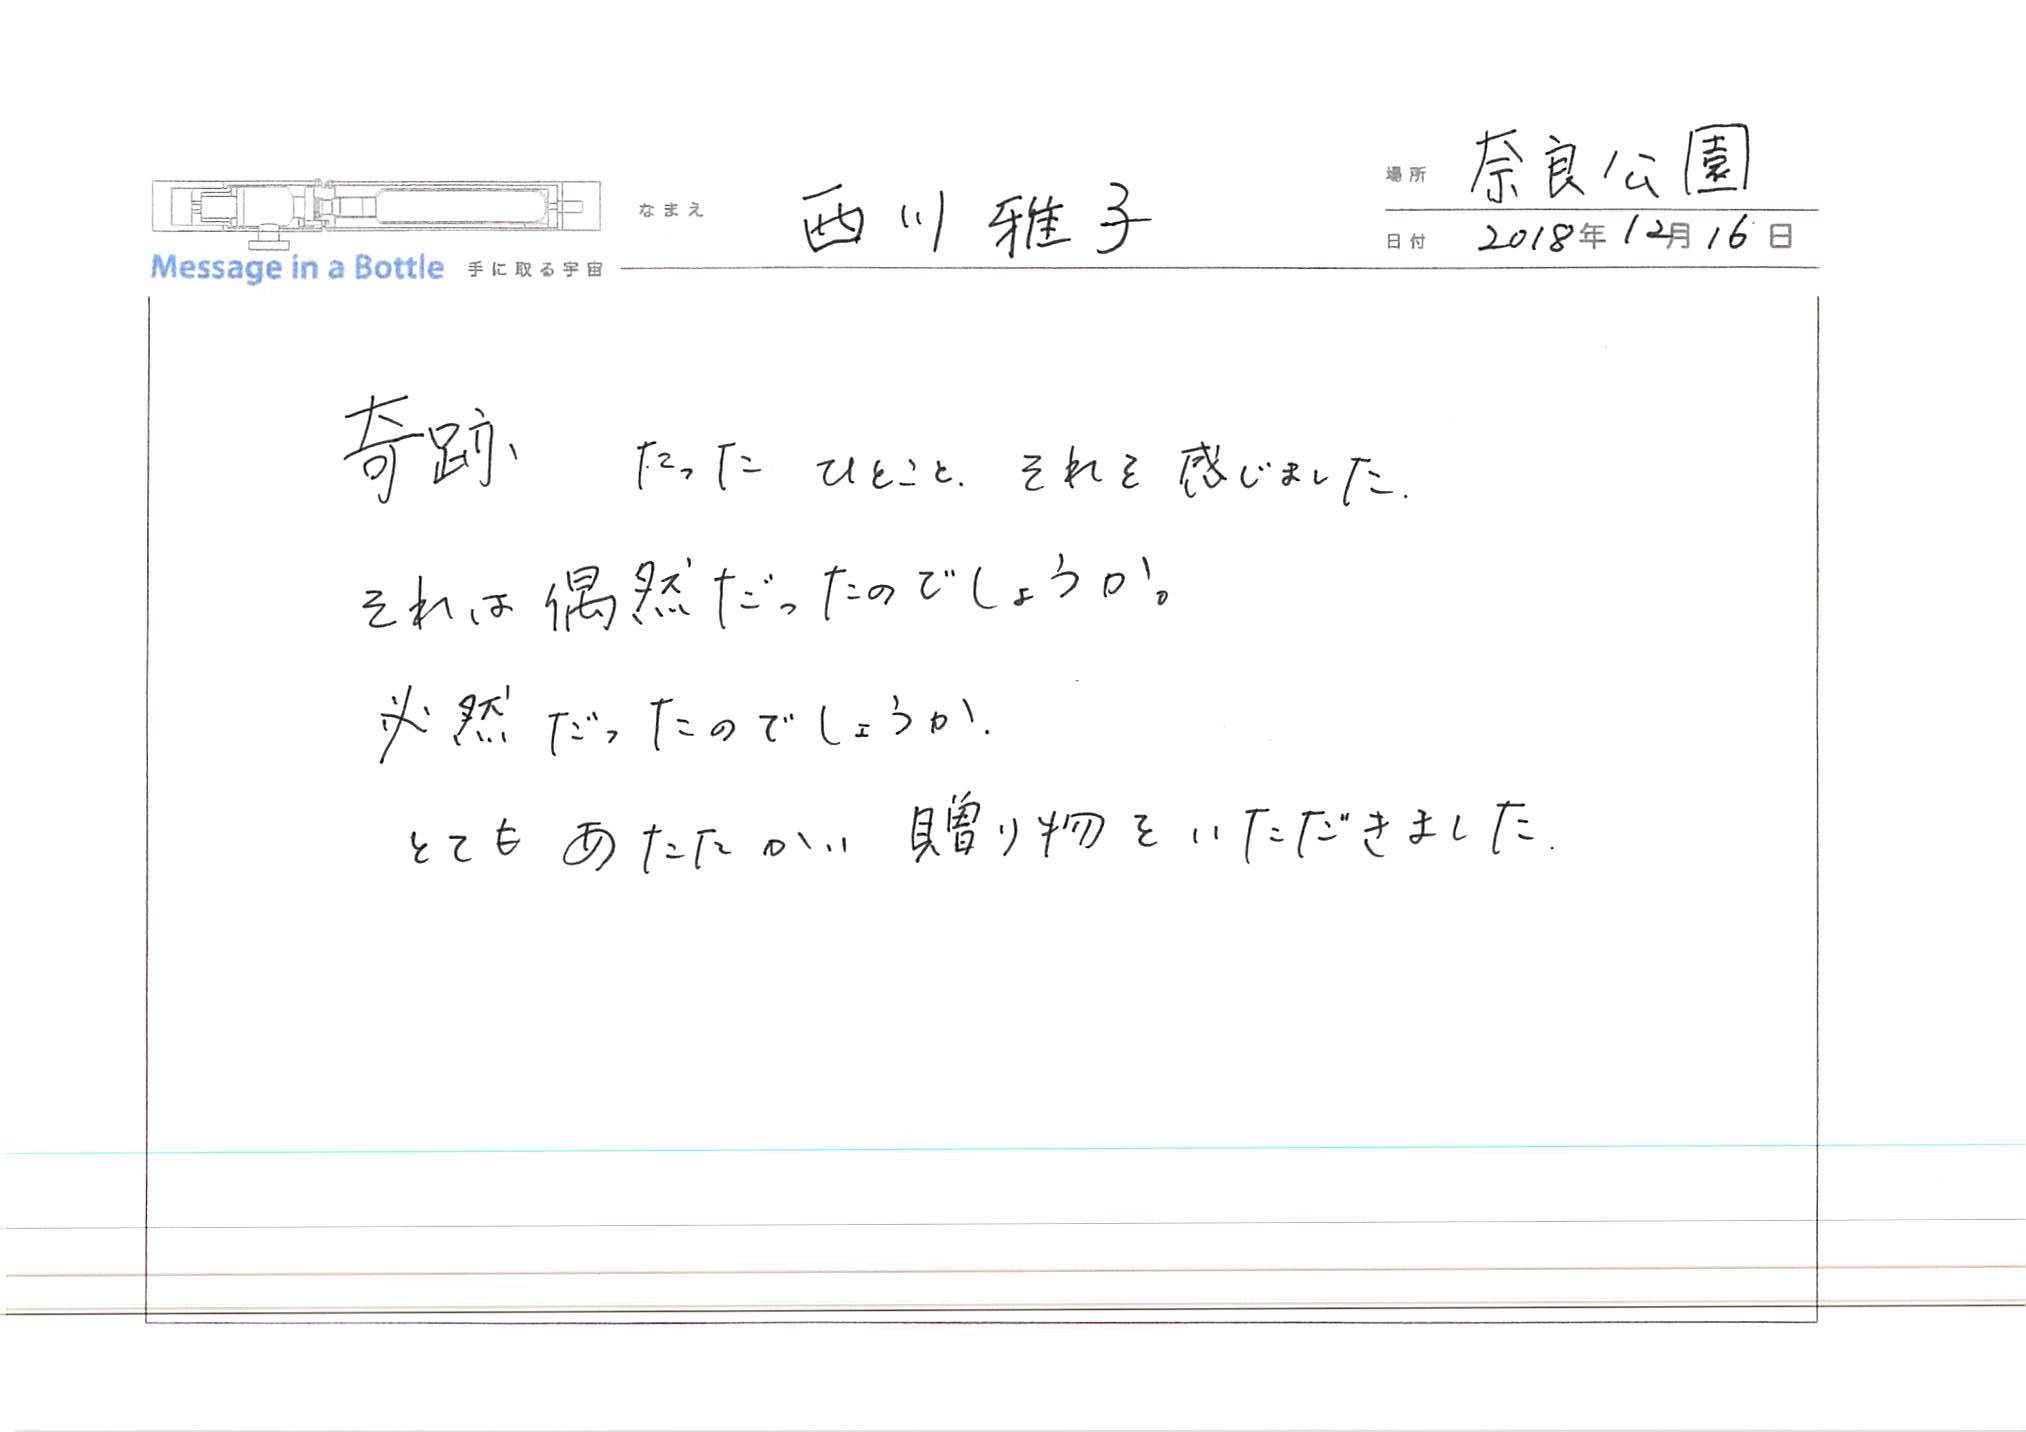 場所 奈良公園
なまえ 西川 雅子
日付 2018年12月16日
Message in a Bottle 手に取る宇宙
奇跡、 たった ひとこと. それを 感じました.
それは 偶然だったのでしょうか。
必然 だったのでしょうか.
とても あたたかい 贈り物をいただきました.